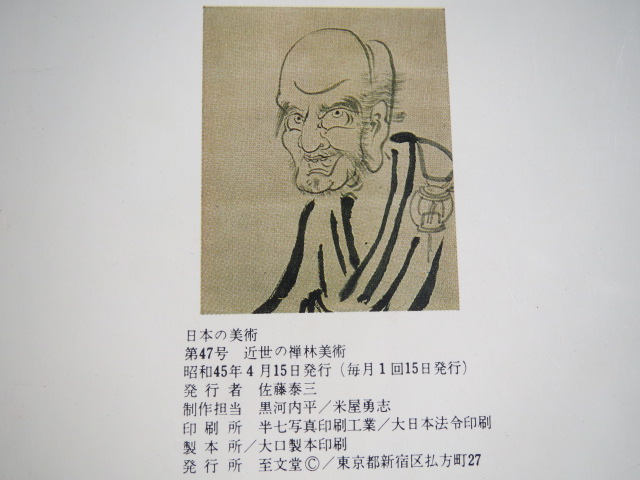 日本の美術
第47号 近世の禅林美術
昭和45年4月15日発行(毎月1回15日発行)
発行者 佐藤泰三
制作担当 黒河内平/米屋勇志
印刷所 半七写真印刷工業/大日本法令印刷
製本所/大口製本印刷
発行所 至文堂©/東京都新宿区払方町27